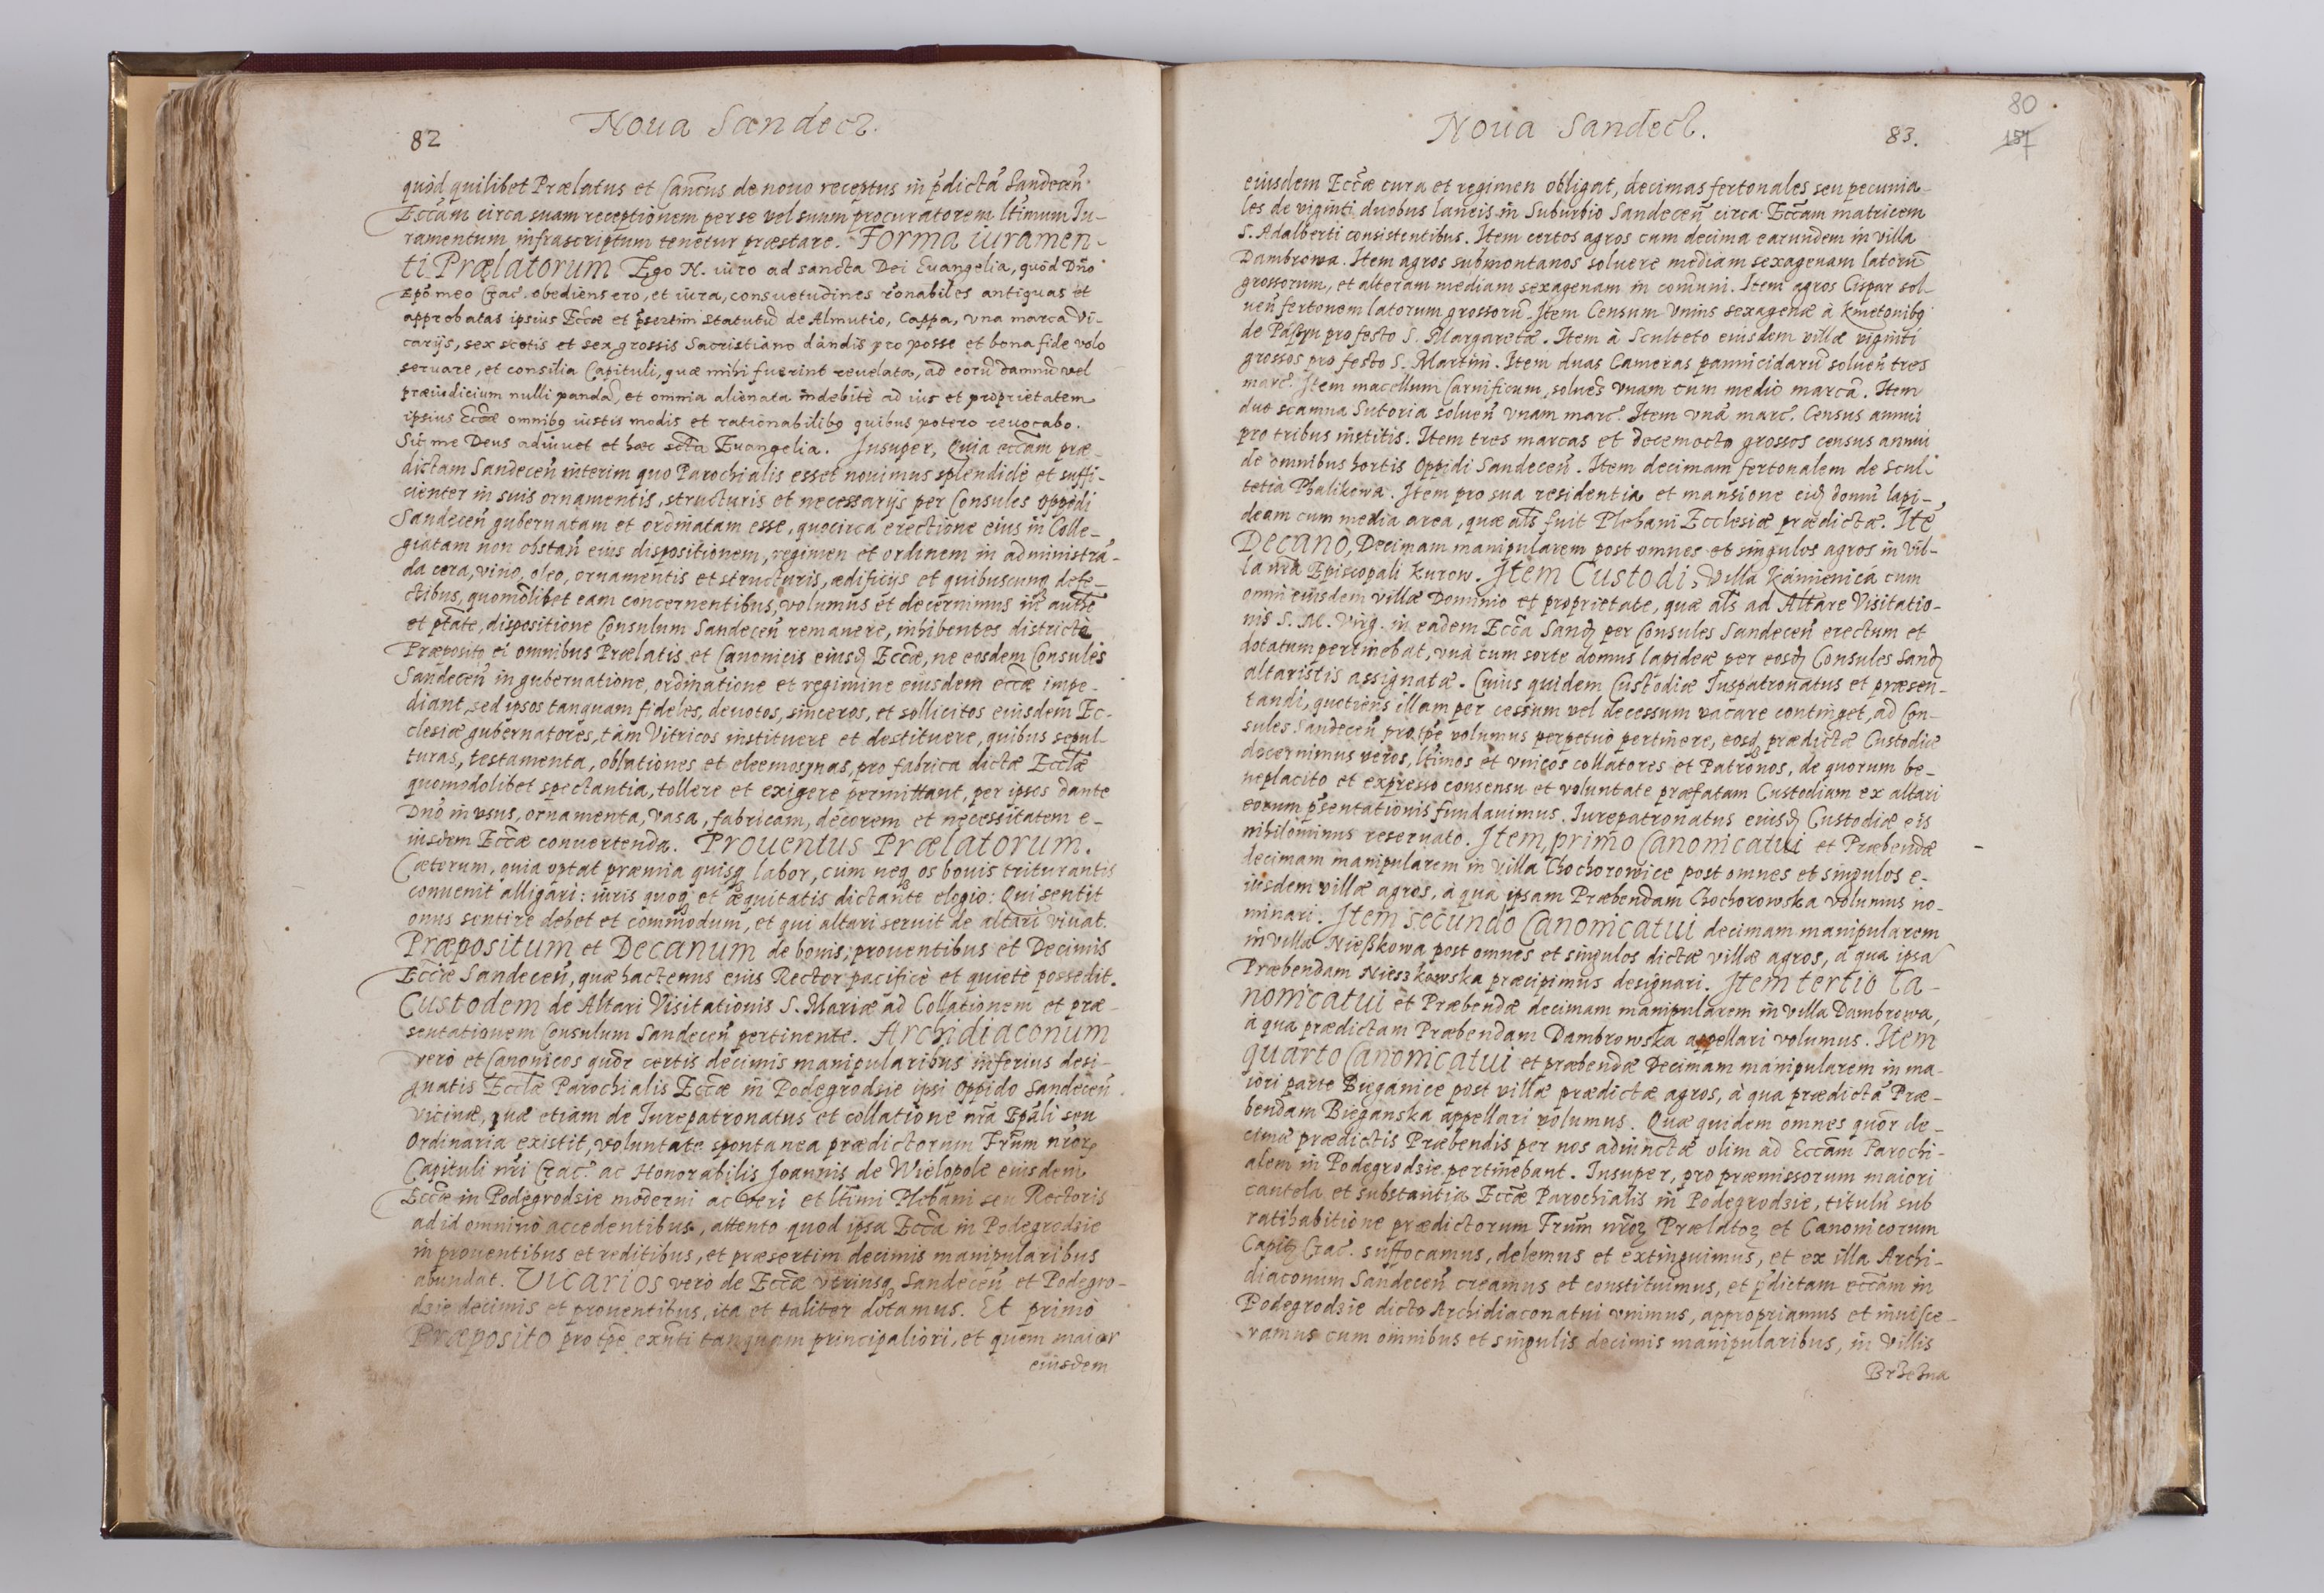 82
Noua Sandecz.
quòd quilibet Prælatus et Cancus de nouo receptus in pdictã Sandecen̄
Eccãm circa suam receptionem per se vel suum procuratorem ltimum Iu-
ramentum infrascriptum tenetur præstare. Forma iuramen-
ti Prælatorum Ego N. iuro ad sancta Dei Euangelia, quòd Dño
Epõ meo Crac. obediens ero, et iura, consuetudines rõnabiles antiquas et
approbatas ipsius Eccæ et psertim statutũ de Almutio, Cappa, vna marca Vi-
carijs, sex scotis et sex grossis Sacristiano dandis pro posse et bona fide volo
seruare, et consilia Capituli, quæ mihi fuerint reuelata, ad eorũ damnũ vel
præiudicium nulli pandã, et omnia alienata indebitè ad ius et proprietatem
ipsius Eccæ omnibq iustis modis et rationabilibq quibus potero reuocabo.
Sic me Deus adiuuet et hæc scta Euangelia. Insuper, Quia eccãm præ-
dictam Sandecen̄ interim quo Parochialis esset nouimus splendidè et suffi-
cienter in suis ornamentis, structuris et necessarijs per Consules Oppidi
Sandecen̄ gubernatam et ordinatam esse, quocirca erectione eius in Colle-
giatam non obstan̄ eius dispositionem, regimen et ordinem in administrã-
da cera, vino, oleo, ornamentis et structuris, ædificijs et quibuscunq defe-
ctibus, quomõlibet eam concernentibus, volumus et decernimus in authte
et ptãte, dispositione Consulum Sandecen̄ remanere, inhibentes districtè
Præposito et omnibus Prælatis et Canonicis eiusd Eccæ, ne eosdem Consules
Sandecen̄ in gubernatione, ordinatione et regimine eiusdem eccæ impe-
diant, sed ipsos tanquam fideles, deuotos, sinceros, et sollicitos eiusdem Ec-
clesiæ gubernatores, tàm Vitricos instituere et destituere, quibus sepul-
turas, testamenta, oblationes et eleemosynas, pro fabrica dictæ Ecclæ
quomodolibet spectantia, tollere et exigere permittant, per ipsos dante
Dnõ in vsus, ornamenta, vasa, fabricam, decorem et necessitatem e-
iusdem Eccæ conuertenda. Prouentus Prælatorum.
Cæterum, quia optat præmia quisq labor, cùm neq os bouis triturantis
conuenit alligari: iuris quoq et æquitatis dictante elogio: Qui sentit
onus sentire debet et commodum, et qui altari seruit de altari viuat.
Præpositum et Decanum de bonis, prouentibus et Decimis
Eccæ Sandecen̄, quæ hactenus eius Rector pacificè et quietè possedit.
Custodem de Altari Visitationis S. Mariæ ad Collationem et præ-
sentationem Consulum Sandecen̄ pertinente. Archidiaconum
verò et Canonicos quõr certis decimis manipularibus inferius desi-
gnatis Ecclæ Parochialis Eccæ in Podegrodsie ipsi oppido Sandecen̄
vicinæ, quæ etiam de Iurepatronatus et collatione nrã Epãli seu
Ordinaria existit, voluntate spontanea prædictorum Frum nrõr
Capituli nri Crac. ac Honorabilis Joannis de Wielopole eiusdem
Eccæ in Podegrodsie moderni ac veri et ltimi Plebani seu Rectoris
ad id omninò accedentibus, attento quod ipsa Eccã in Podegrodsie
in prouentibus et reditibus, et præsertim decimis manipularibus
abundat. Vicarios verò de Eccæ vtriusq Sandecen̄ et Podegro-
dsie decimis et prouentibus, ita et taliter dotamus. Et primò
Præposito pro tpe exñti tanquam principaliori, et quem maior
eiusdem
Noua Sandecz.
83.
80
157
eiusdem Eccæ cura et regimen obligat, decimas fertonales seu pecunia-
les de viginti duobus laneis in Suburbio Sandecen̄ circa Eccãm matricem
S. Adalberti consistentibus. Item certos agros cum decima earundem in villa
Dambrowa. Item agros submontanos soluere mediam sexagenam latorũ
grossorum, et alteram mediam sexagenam in comuni. Item agros Cispar sol-
uen̄ fertonem latorum grossorũ. Item Censum vnius sexagenæ à kmetonibq
de Paszyn pro festo S. Margaretæ. Item à Sculteto eiusdem villæ viginti
grossos pro festo S. Martini. Item duas Cameras pannicidarũ soluen̄ tres
marc. Item macellum Carnificum, soluen̄s vnam cum medio marcã. Item
duo scamna Sutoria soluen̄ vnam marc. Item vnã marc. Census annui
pro tribus institis. Item tres marcas et decemocto grossos census annui
de omnibus hortis oppidi Sandecen̄. Item decimam fertonalem de Scul-
tetia Phalikowa. Item pro sua residentia et mansione eid domũ lapi-
deam cum media area, quæ als fuit Plebani Ecclesiæ prædictæ. Itẽ
Decano, Decimam manipularem post omnes et singulos agros in Vil-
la nrã Episcopali Kurow. Item Custodi, Villa Kamienica cum
omni eiusdem villæ Dominio et proprietate, quæ als ad Altare Visitatio-
nis S. M. Virg. in eadem Eccã Sand per Consules Sandecen̄ erectum et
dotatum pertinebat, vnà cum sorte domus lapideæ per eosd Consules Sand
altaristis assignatæ. Cuius quidem Custodiæ Iuspatronatus et præsen-
tandi, quotiens illam per cessum vel decessum vacare continget, ad Con-
sules Sandecen̄ pro tpe volumus perpetuò pertinere, eosq prædictæ Custodiæ
decernimus veros, ltimos et vnicos collatores et Patronos, de quorum be-
neplacito et expresso consensu et voluntate præfatam Custodiam ex altari
eorum psentationis fundauimus. Iurepatronatus eiusd Custodiæ eis
nihilominus reseruato. Item, primo Canonicatui et Præbendæ
decimam manipularem in villa Chochorowice post omnes et singulos e-
iusdem villæ agros, à qua ipsam Præbendam Chochorowska volumus no-
minari. Item secundo Canonicatui decimam manipularem
in villa Nießkowa post omnes et singulos dictæ villæ agros, à qua ipsã
Præbendam Nieszkowska præcipimus designari. Item tertio Ca-
nonicatui et Præbendæ decimam manipularem in villa Dambrowa,
à qua prædictam Præbendam Dambrowska appellari volumus. Item
quarto Canonicatui et præbendæ Decimam manipularem in ma-
iori parte Bieganice post villæ prædictæ agros, à qua prædictã Præ-
bendam Bieganska appellari volumus. Quæ quidem omnes quõr de-
cimæ prædictis Præbendis per nos adiunctæ olim ad Eccãm Parochi-
alem in Podegrodsie pertinebant. Insuper, pro præmissorum maiori
cautela et substantia Eccæ Parochialis in Podegrodsie, titulũ sub
ratihabitione prædictorum Frum nrõrꝫ Prælatoꝫ et Canonicorum
Capitꝫ Crac. suffocamus, delemus et extinguimus, et ex illa Archi-
diaconum Sandecen̄ creamus et constituimus, et pdictam eccãm in
Podegrodsie dicto Archidiaconatui vnimus, appropriamus et inuisce-
ramus cum omnibus et singulis decimis manipularibus, in villis
Brzezna